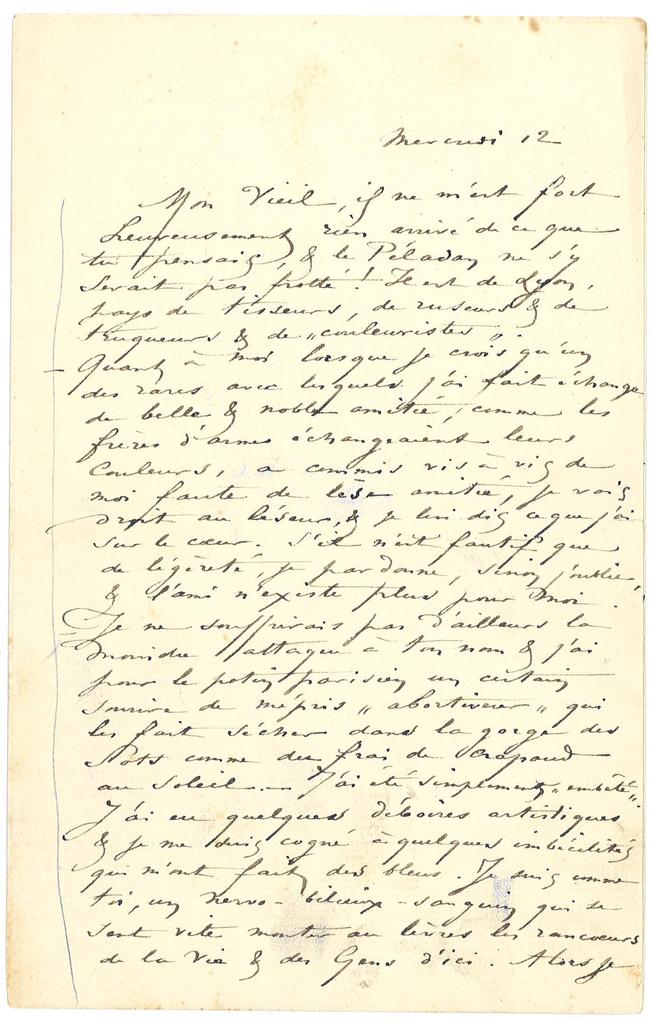 Mercredi 12
Mon Vieil, il ne m'est fort
heureusement rien arrivé de ce que
tu pensais, & le Péladan ne s'y
serait pas frotté ! Il est de Lyon,
pays de tisseurs, de ruseurs & de
truqueurs & de „couleuristes„.
Quant à moi lorsque je crois qu'un
des rares avec lesquels j'ai fait échange
de belle & noble amitié, comme les
frères d'armes échangeaient leurs
couleurs, a commis vis à vis de
moi faute de lèse amitié, je vais
droit au léseur, & je lui dis ce que j'ai
sur le cœur. S'il n'est fautif que
de légèreté, je pardonne, sinon j'oublie,
& l'ami n'existe plus pour moi.
Je ne souffrirais pas d'ailleurs la
moindre attaque à ton nom & j'ai
pour le potin parisien un certain
sourire de mépris „abortiveur„ qui
les fait sécher dans la gorge des
sots comme du frai de crapaud
au soleil. — J'ai été simplement „embêté„.
J'ai eu quelques déboires artistiques
& je me suis cogné à quelques imbécilités
qui m'ont fait des bleus. Je suis comme
toi, un nervo-bilieux-sanguin qui se
sent vite monter au lèvres les rancoeurs
de la Vie & des Gens d'ici. Alors je